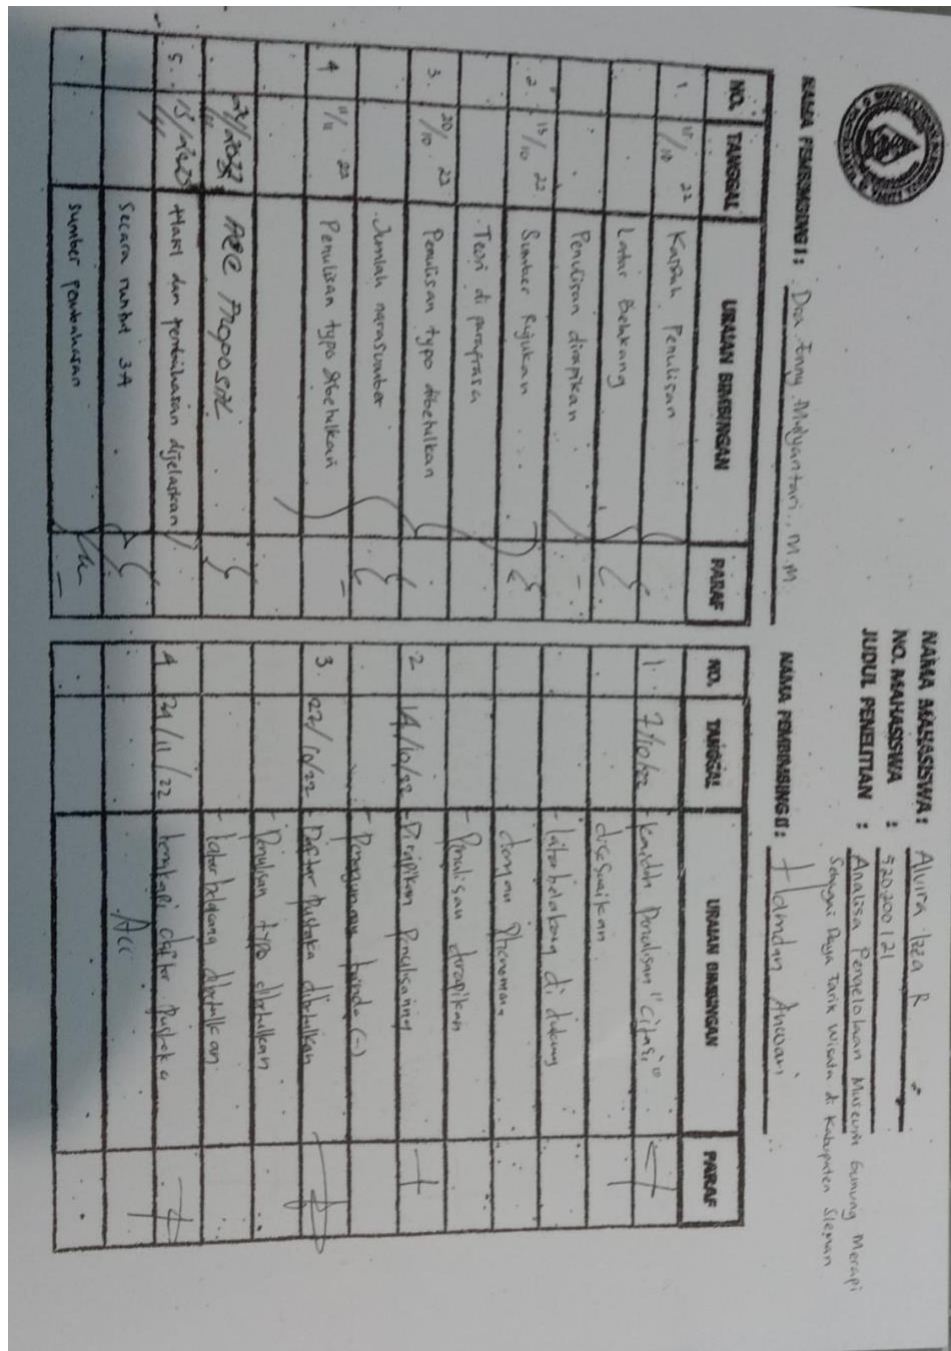 NAMA MAHASISWA : Alvira Izza R
NO. MAHASISWA : 520200121
JUDUL PENELITIAN : Analisa Pengelolaan Museum Gunung Merapi
Sebagai Daya Tarik Wisata di Kabupaten Sleman
NAMA PEMBIMBING I : Dra. Enny Mulyantari, M.M
NO. TANGGAL URAIAN BIMBINGAN PARAF
1. 22 Kaidah Penulisan
Latar Belakang
Penulisan dirapikan
2. 13/10 22 Sumber Rujukan
Teori di paraprasa
3. 20/10 22 Penulisan typo dibetulkan
Jumlah narasumber
4 11/11 22 Penulisan typo dibetulkan
ACC PROPOSAL
5. Hasil dan pembahasan dijelaskan
Secara runtut 3A
sumber pembahasan
NAMA PEMBIMBING II : Hamdan Anwari
NO. TANGGAL URAIAN BIMBINGAN PARAF
1. 7/10/22 - Kaidah Penulisan "Citasi"
disesuaikan
- latar belakang di dukung
dengan Phenomena
- Penulisan dirapikan
2 14/10/22 - Dirapikan
(-)
3. 27/10/22 - Daftar Pustaka dibetulkan
- Penulisan typo dibetulkan
- latar belakang dibetulkan
4 21/11/22 - lengkapi daftar Pustaka
Acc